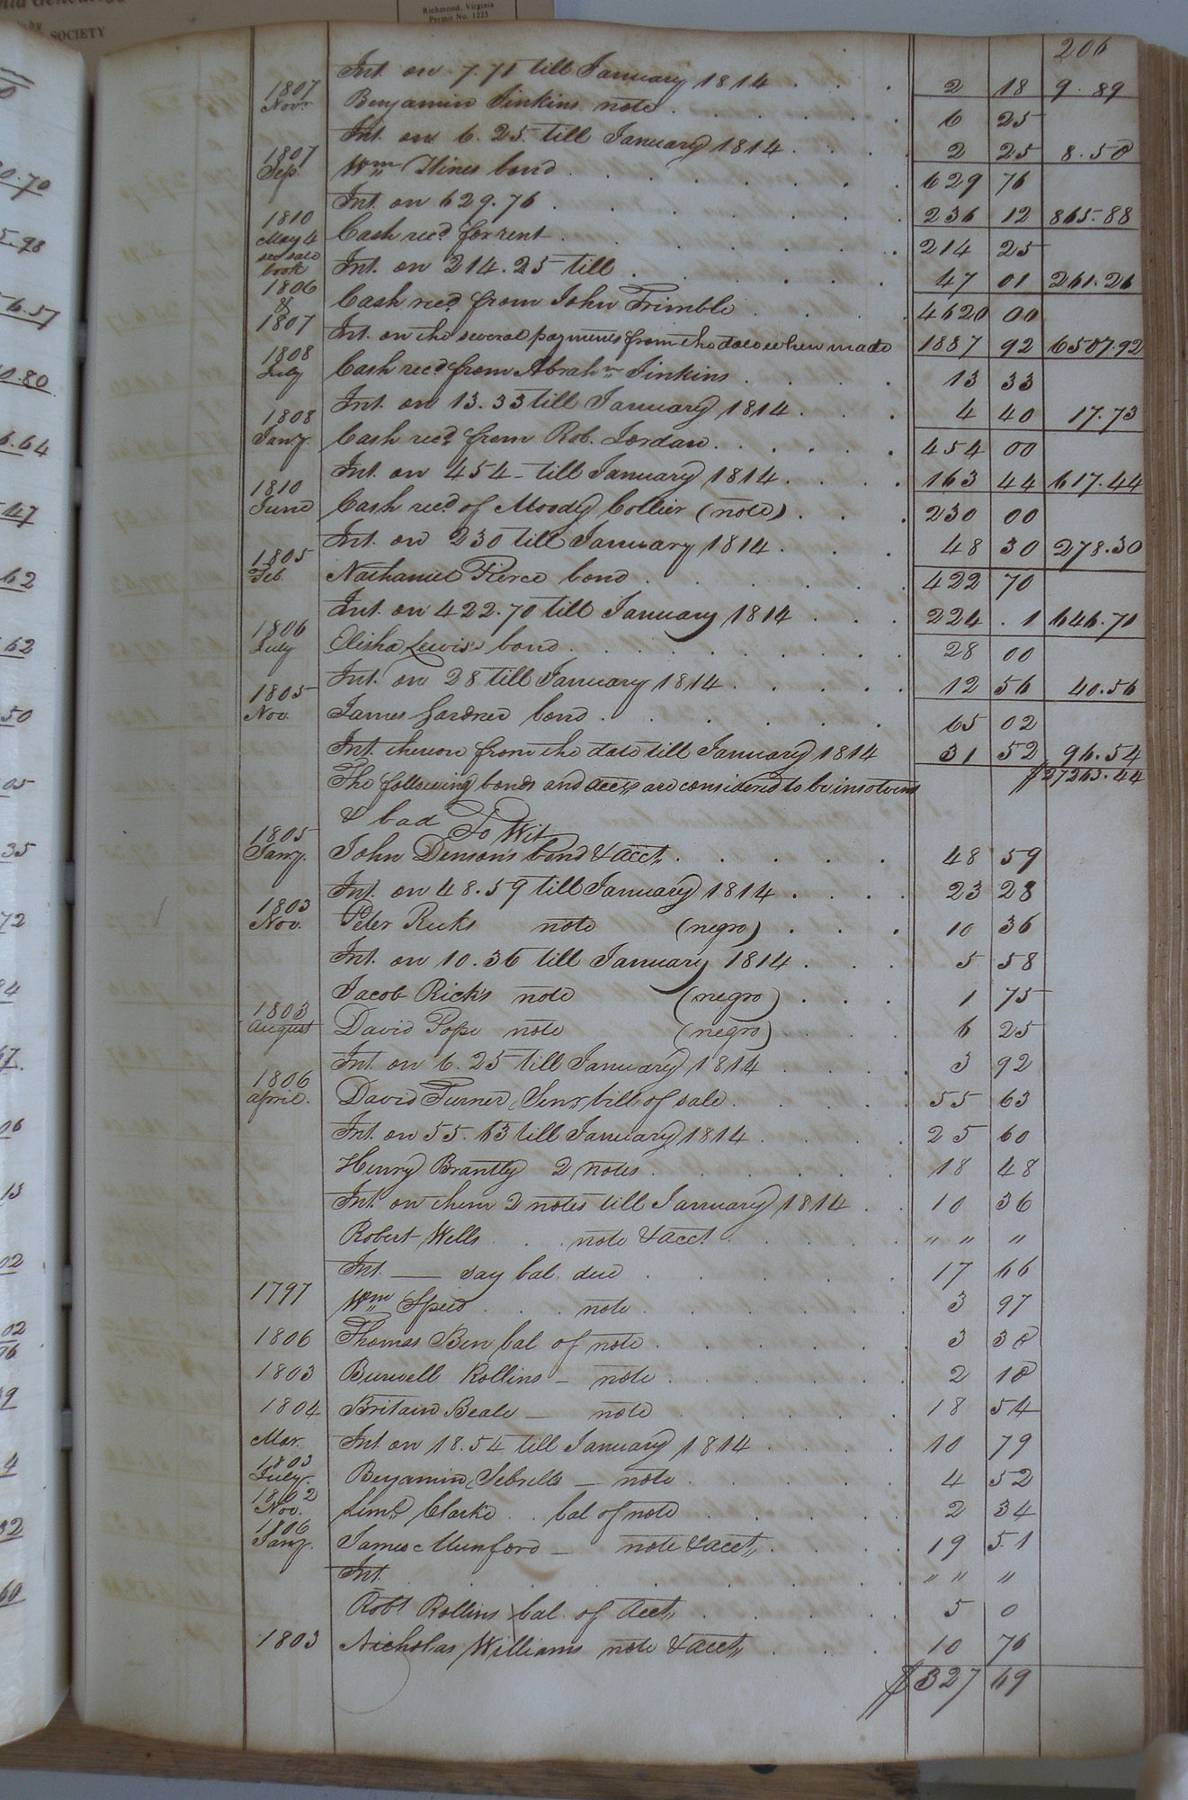 SOCIETY
Richmond, Virginia
Permit No. 1225
206
Int. on 7.71 till January 1814 . . . 2 18 9.89
1807 Novr. Benjamin Jinkins note . . . 6 25
Int. on 6.25 till January 1814 . . . 2 25 8.50
1807 Sep. Wm Hines bond . . . 629 76
Int. on 629.76 . . . 236 12 865.88
1810 May 4 see sale book Cash recd for rent . . . 214 25
Int. on 214.25 till . . . 47 01 261.26
1806 & 1807 Cash recd from John Trimble . . . 4620 00
Int. on the several payments from the date when made 1887 92 6507.92
1808 July Cash recd from Abrahm Jinkins . . . 13 33
Int. on 13.33 till January 1814 . . . 4 40 17.73
1808 Jany. Cash recd from Rob. Jordan . . . 454 00
Int. on 454 till January 1814 . . . 163 44 617.44
1810 June Cash recd of Moody Collier (note) . . . 230 00
Int. on 230 till January 1814 . . . 48 30 278.30
1805 Feb. Nathaniel Pierce bond . . . 422 70
Int. on 422.70 till January 1814 . . . 224 .1 646.71
1806 July Elisha Lewis's bond . . . 28 00
Int. on 28 till January 1814 . . . 12 56 40.56
1805 Nov. James Gardner bond . . . 65 02
Int. thereon from the date till January 1814 31 52 96.54
The following bonds and accts are considered to be insolvent $27263.44
& bad To Wit
1805 Jany. John Denson's bond & acct . . . 48 59
Int. on 48.59 till January 1814 . . . 23 28
1803 Nov. Peter Ricks note (negro) . . . 10 36
Int. on 10.36 till January 1814 . . . 5 58
Jacob Rick's note (negro) . . . 1 75
1803 August David Pope note (negro) . . . 6 25
Int. on 6.25 till January 1814 . . . 3 92
1806 April. David Turner, Senr bill of sale . . . 55 63
Int. on 55.63 till January 1814 . . . 25 60
Henry Brantly 2 notes . . . 18 48
Int. on them 2 notes till January 1814 . . 10 36
Robert Wells . . note & acct . . . " " "
Int. — say bal. due . . . 17 66
1797 Wm Speed . . . note . . . 3 97
1806 Thomas Ben bal of note . . . 3 38
1803 Burwell Rollins — note . . . 2 18
1804 Britain Beale — note . . . 18 54
Mar. Int. on 18.54 till January 1814 . . . 10 79
1803 July. Benjamin Sebrells — note . . . 4 52
1802 Nov. Clarke . . bal of note . . . 2 34
1806 Jany. James Munford — note & acct . . . 19 51
Int. . . . " " "
Robt Rollins bal. of acct . . . 5 0
1803 Nicholas Williams note & acct . . . 10 76
$327 69